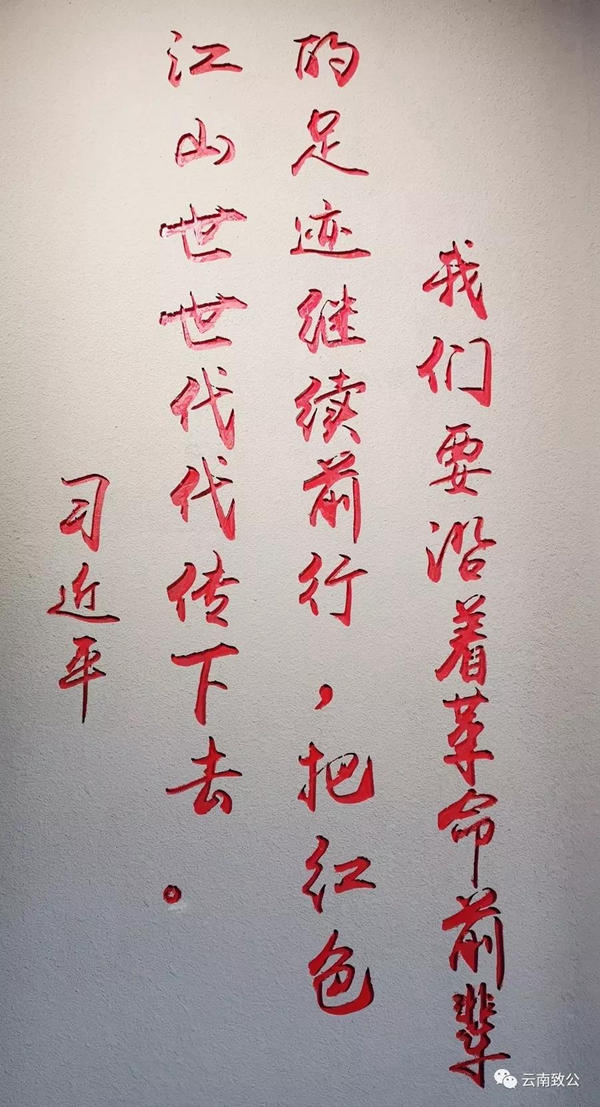 我们要沿着革命前辈
的足迹继续前行，把红色
江山世世代代传下去。
习近平
云南致公